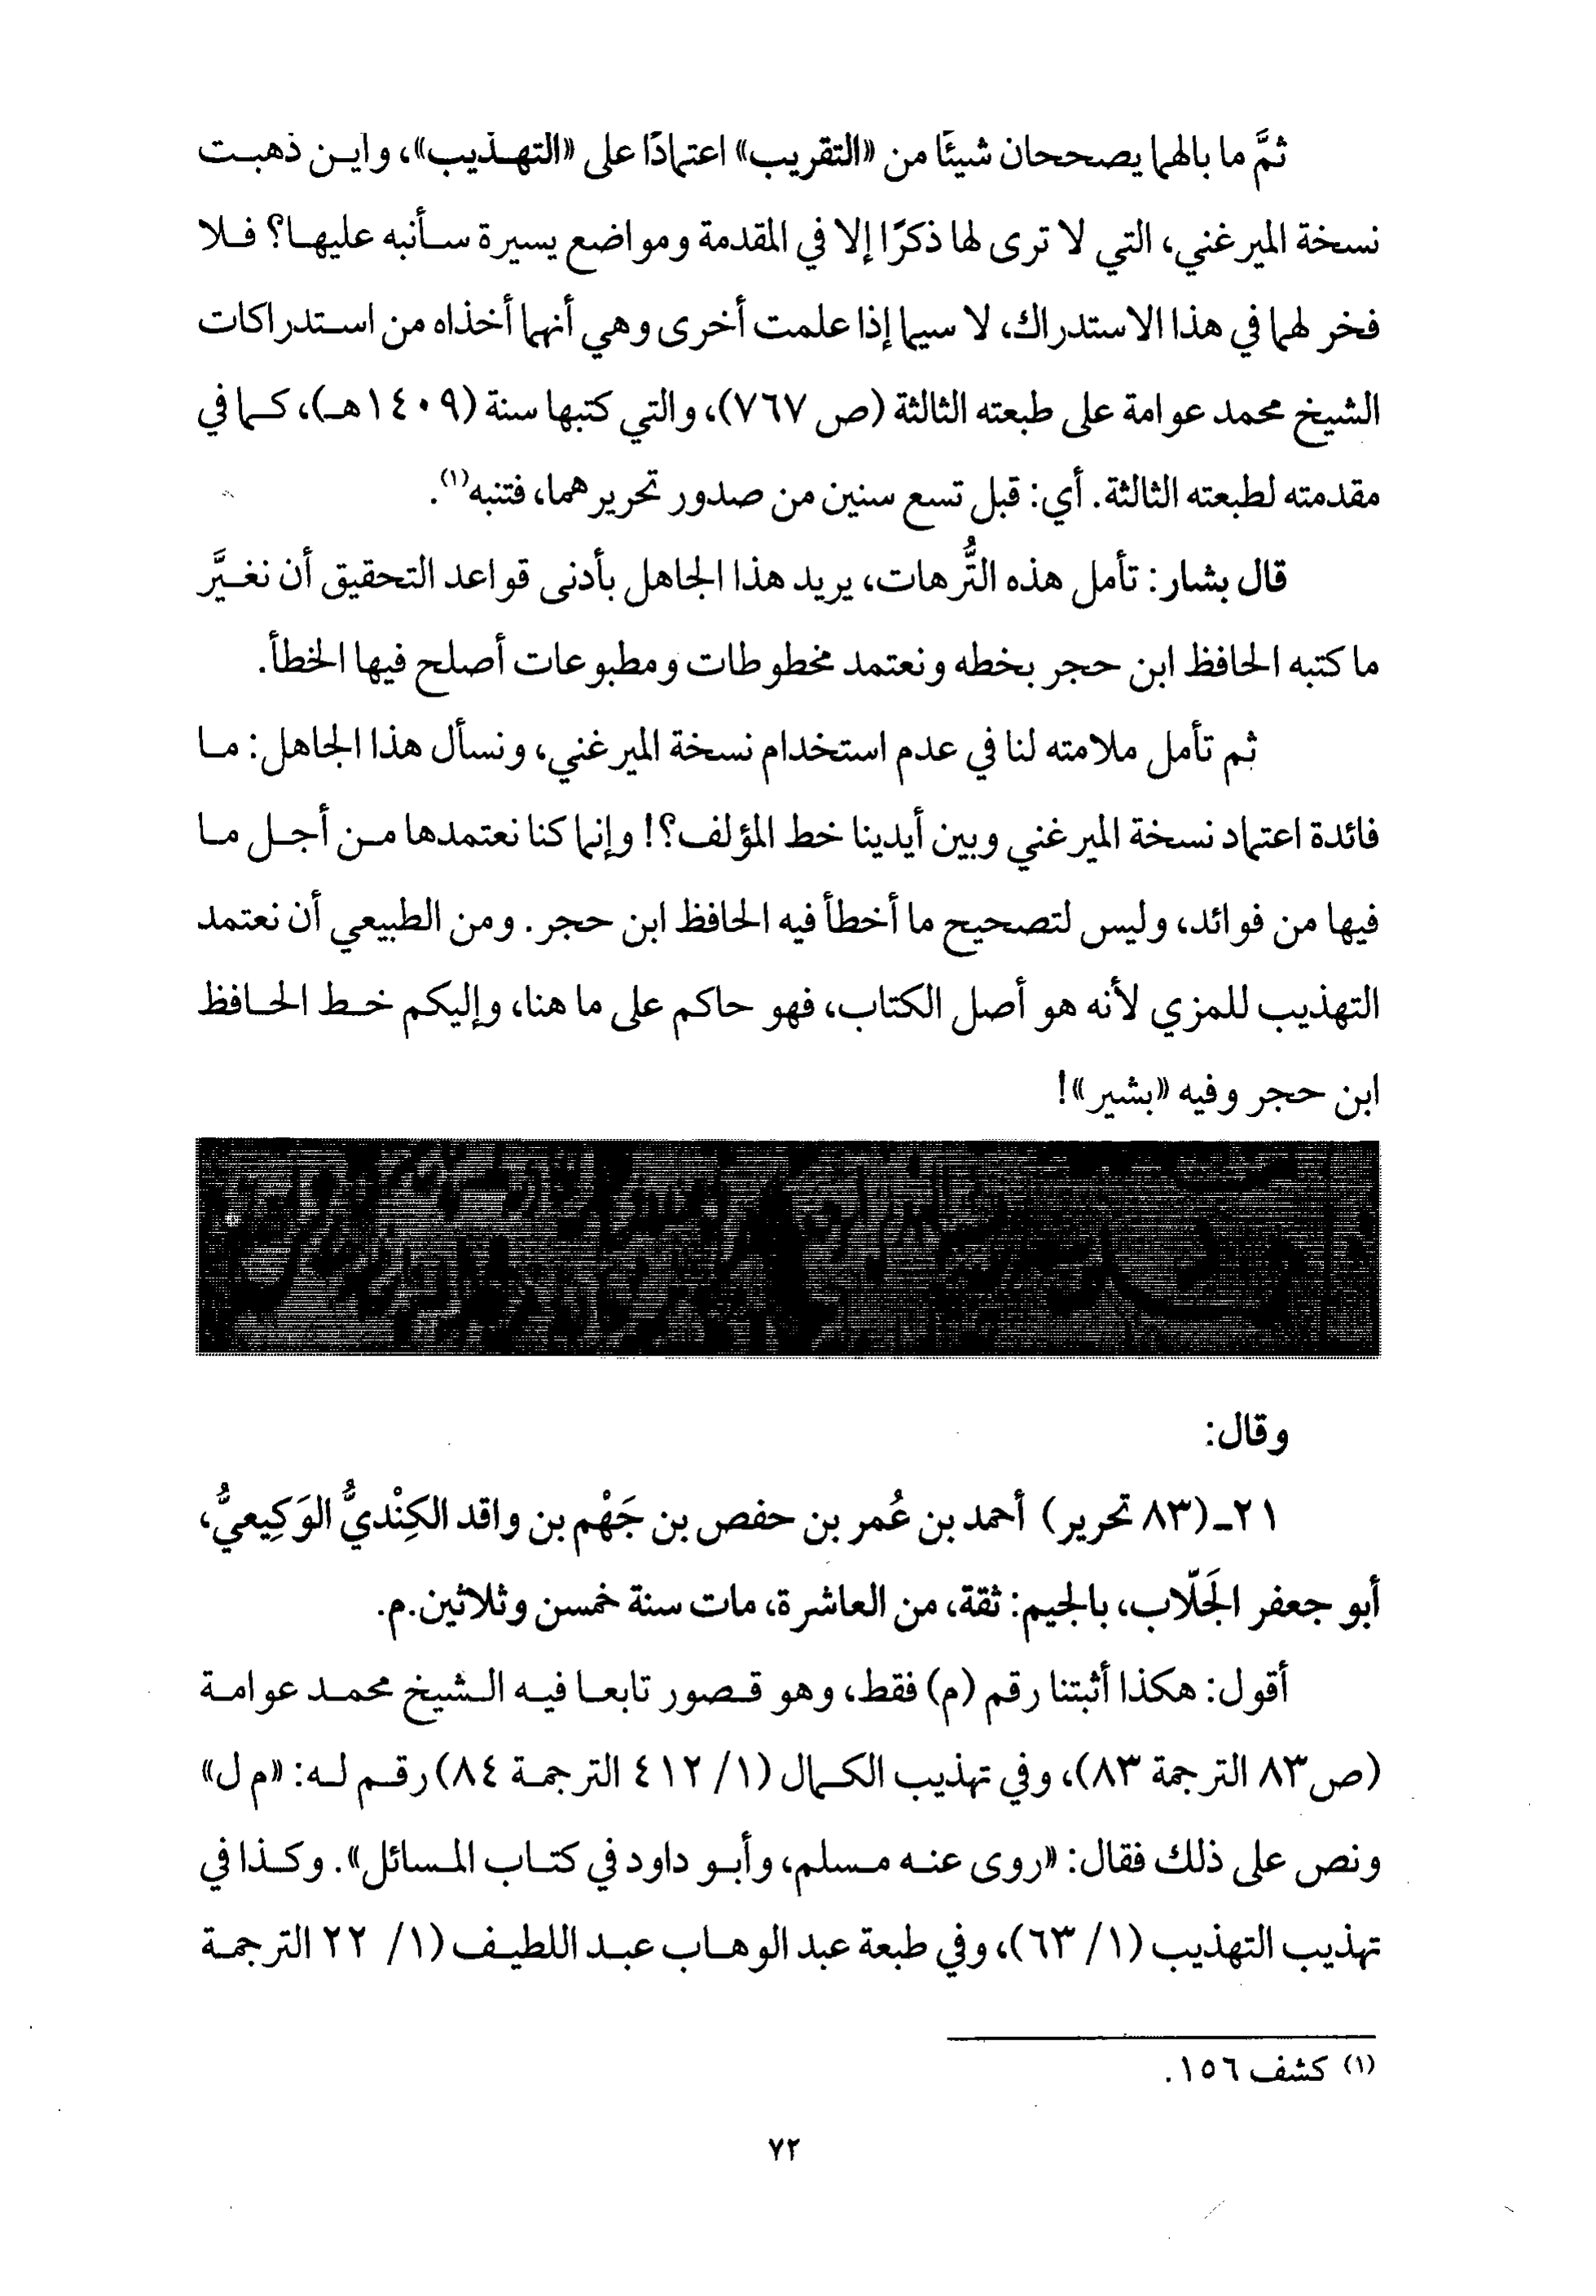 ثمَّ ما بالهما يصححان شيئًا من «التقريب» اعتمادًا على «التهذيب»، واين ذهبت
نسخة الميرغني، التي لا ترى لها ذكرًا إلا في المقدمة ومواضع يسيرة سأنبه عليها؟ فلا
فخر لهما في هذا الاستدراك، لا سيما إذا علمت أخرى وهي أنهما أخذاه من استدراكات
الشيخ محمد عوامة على طبعته الثالثة (ص ٧٦٧)، والتي كتبها سنة (١٤٠٩هـ)، كما في
مقدمته لطبعته الثالثة. أي: قبل تسع سنين من صدور تحريرهما، فتنبه(١).
قال بشار: تأمل هذه التُّرهات، يريد هذا الجاهل بأدنى قواعد التحقيق أن نغيَّر
ما كتبه الحافظ ابن حجر بخطه ونعتمد مخطوطات ومطبوعات أصلح فيها الخطأ.
ثم تأمل ملامته لنا في عدم استخدام نسخة الميرغني، ونسأل هذا الجاهل: ما
فائدة اعتماد نسخة الميرغني وبين أيدينا خط المؤلف؟! وإنما كنا نعتمدها من أجل ما
فيها من فوائد، وليس لتصحيح ما أخطأ فيه الحافظ ابن حجر. ومن الطبيعي أن نعتمد
التهذيب للمزي لأنه هو أصل الكتاب، فهو حاكم على ما هنا، وإليكم خط الحافظ
ابن حجر وفيه «بشير»!
وقال:
٢١ـ (٨٣ تحرير) أحمد بن عُمر بن حفص بن جَهْم بن واقد الكِنْديُّ الوَكِيعيُّ،
أبو جعفر الجَلّاب، بالجيم: ثقة، من العاشرة، مات سنة خمسن وثلاثين.م.
أقول: هكذا أثبتنا رقم (م) فقط، وهو قصور تابعا فيه الشيخ محمد عوامة
(ص٨٣ الترجمة ٨٣)، وفي تهذيب الكمال (١/ ٤١٢ الترجمة ٨٤) رقم له: «م ل»
ونص على ذلك فقال: «روى عنه مسلم، وأبو داود في كتاب المسائل». وكذا في
تهذيب التهذيب (١/ ٦٣)، وفي طبعة عبد الوهاب عبد اللطيف (١/ ٢٢ الترجمة
(١) كشف ١٥٦.
٧٢